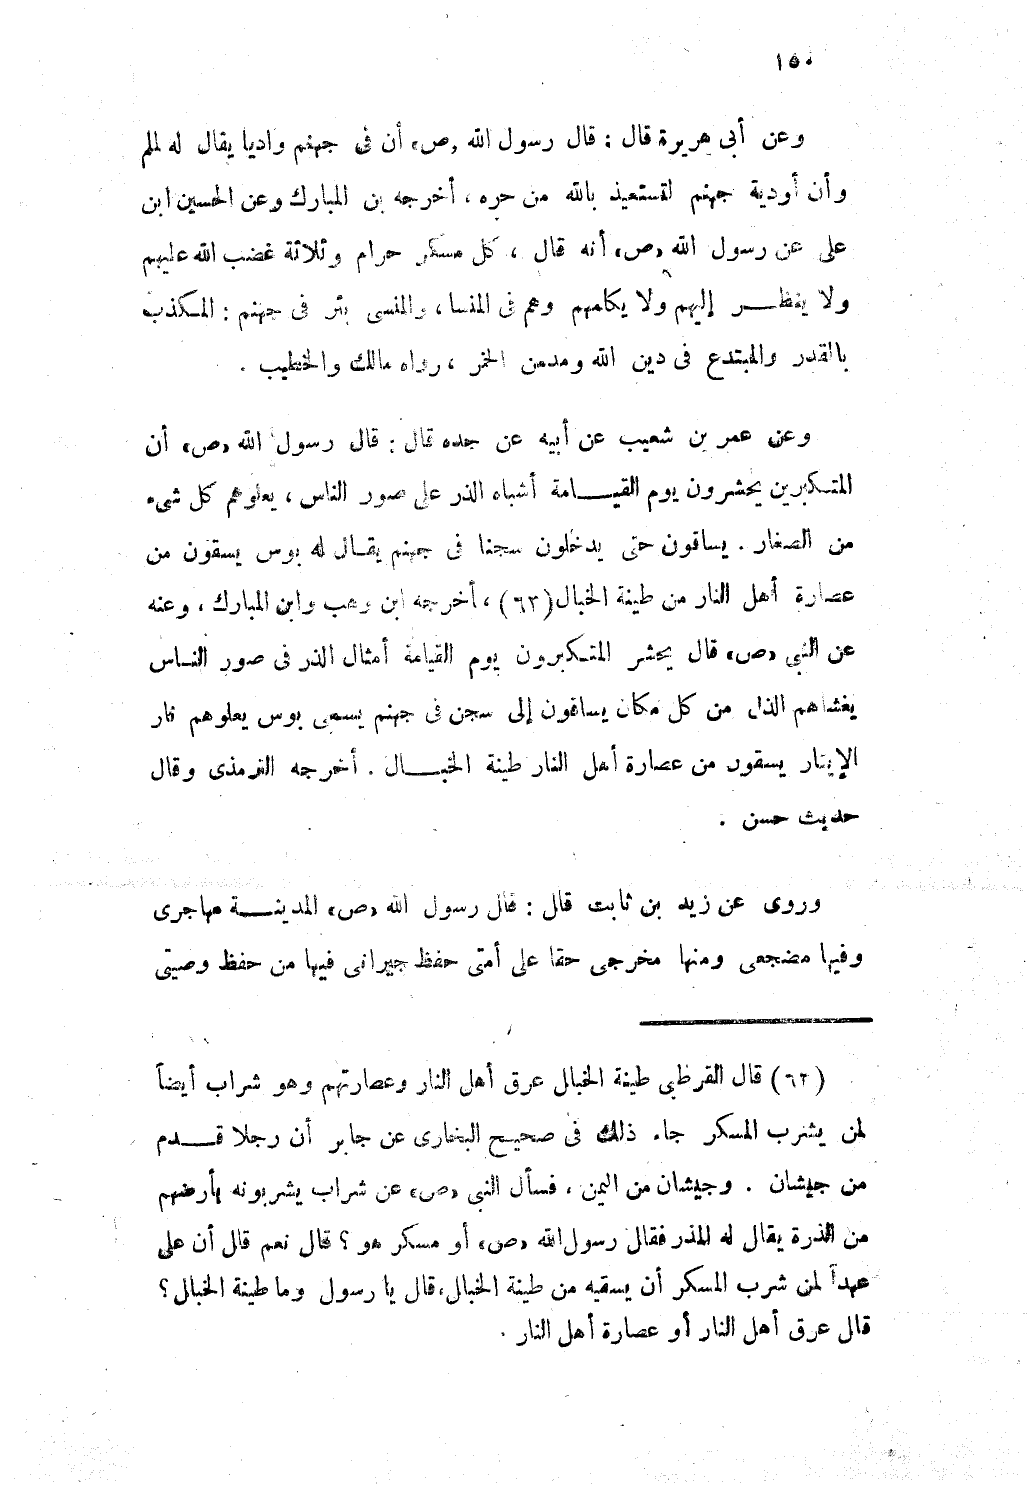 ١٥٠
وعن أبى هريرة قال : قال رسول الله «ص» أن فى جهنم واديا يقال له لملم
وأن أودية جهنم لتستعيذ بالله من حره ، أخرجه بن المبارك وعن الحسين ابن
على عن رسول الله «ص» أنه قال ، كل مسكر حرام وثلاثة غضب الله عليهم
ولا ينظـــر إليهم ولا يكلمهم وهم فى المنسا ، والمنسى بئر فى جهنم : المكذب
بالقدر والمبتدع فى دين الله ومدمن الخمر ، رواه مالك والخطيب .
وعن عمر بن شعيب عن أبيه عن جده قال : قال رسول الله «ص» أن
المتـكبرين يحشرون يوم القيـــامة أشباه الذر على صور الناس ، يعلوهم كل شىء
من الصغار . يساقون حتى يدخلون سجنا فى جهنم يقـال له بوس يسقون من
عصارة أهل النار من طينة الخبال (٦٣) ، أخرجه ابن وهب وابن المبارك ، وعنه
عن النبى «ص» قال يحشر المتـكبرون يوم القيامة أمثال الذر فى صور النـاس
يغشاهم الذل من كل مكان يساقون إلى سجن فى جهنم يسمى بوس يعلوهم نار
الإينار يسقون من عصارة أهل النار طينة الخبـــال . أخرجه الترمذى وقال
حديث حسن .
وروى عن زيد بن ثابت قال : قال رسول الله «ص» المدينـــة مهاجرى
وفيها مضجعى ومنها مخرجى حقا على أمتى حفظ جيرانى فيها من حفظ وصيتى
(٦٢) قال القرطبى طينة الخبال عرق أهل النار وعصارتهم وهو شراب أيضاً
لمن يشرب المسكر جاء ذلك فى صحيح البخارى عن جابر أن رجلا قـــدم
من جيشان . وجيشان من اليمن ، فسأل النبى «ص» عن شراب يشربونه بأرضهم
من الذرة يقال له المذر فقال رسول الله «ص» أو مسكر هو ؟ قال نعم قال أن على
عهداً لمن شرب المسكر أن يسقيه من طينة الخبال، قال يا رسول وما طينة الخبال ؟
قال عرق أهل النار أو عصارة أهل النار .